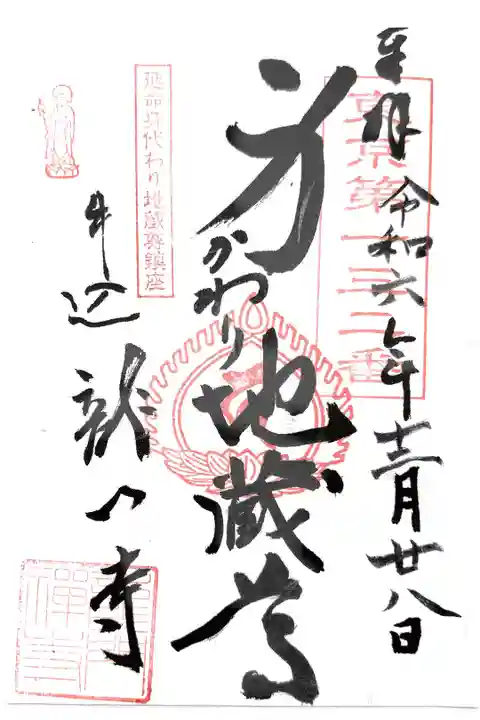 奉拝 令和六年十二月廿八日
東京第一三二番
身かわり地蔵尊
延命身代わり地蔵尊鎮座
牛込 龍門寺